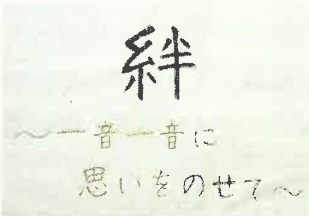 絆
〜一音一音に
思いをのせて〜